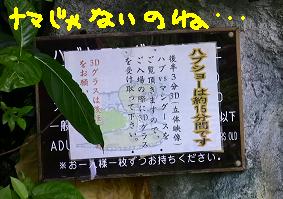 ナマじゃないのね・・・
ハブショーは約15分間です
後半3分3D(立体映像)
ハブvsマングースを
ご覧頂きますので、
ご入場の際に3Dグラス
を受け取って下さい。
3Dグラスは
をお願
一般
以下
ADU
RS OLD
※お一人様一枚ずつお持ちください。